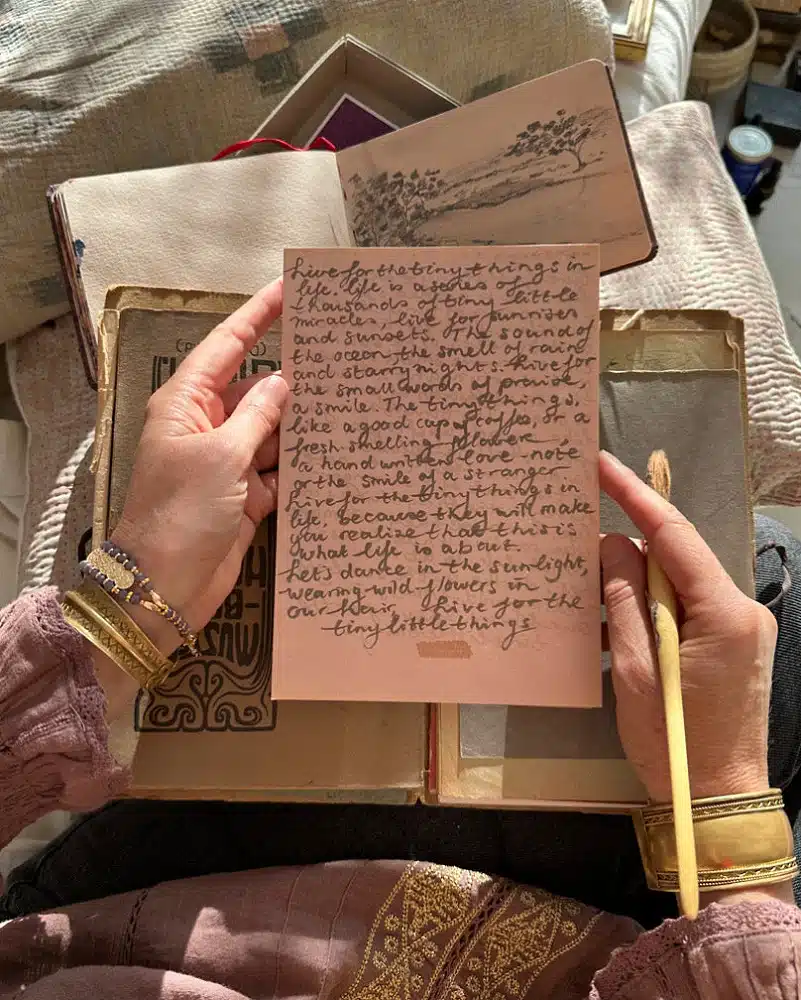 Live for the tiny things in
life. life is a series of
thousands of tiny little
miracles, live for sunrises
and sunsets. The sound of
the ocean the smell of rain
and starry nights. Live for
the small words of praise,
a smile. The tiny things,
like a good cup of coffee, or a
fresh smelling flower,
a hand written love-note
or the smile of a stranger
Live for the tiny things in
life, because they will make
you realize that this is
what life is about.
Let's dance in the sunlight,
wearing wild-flowers in
our hair. Live for the
tiny little things